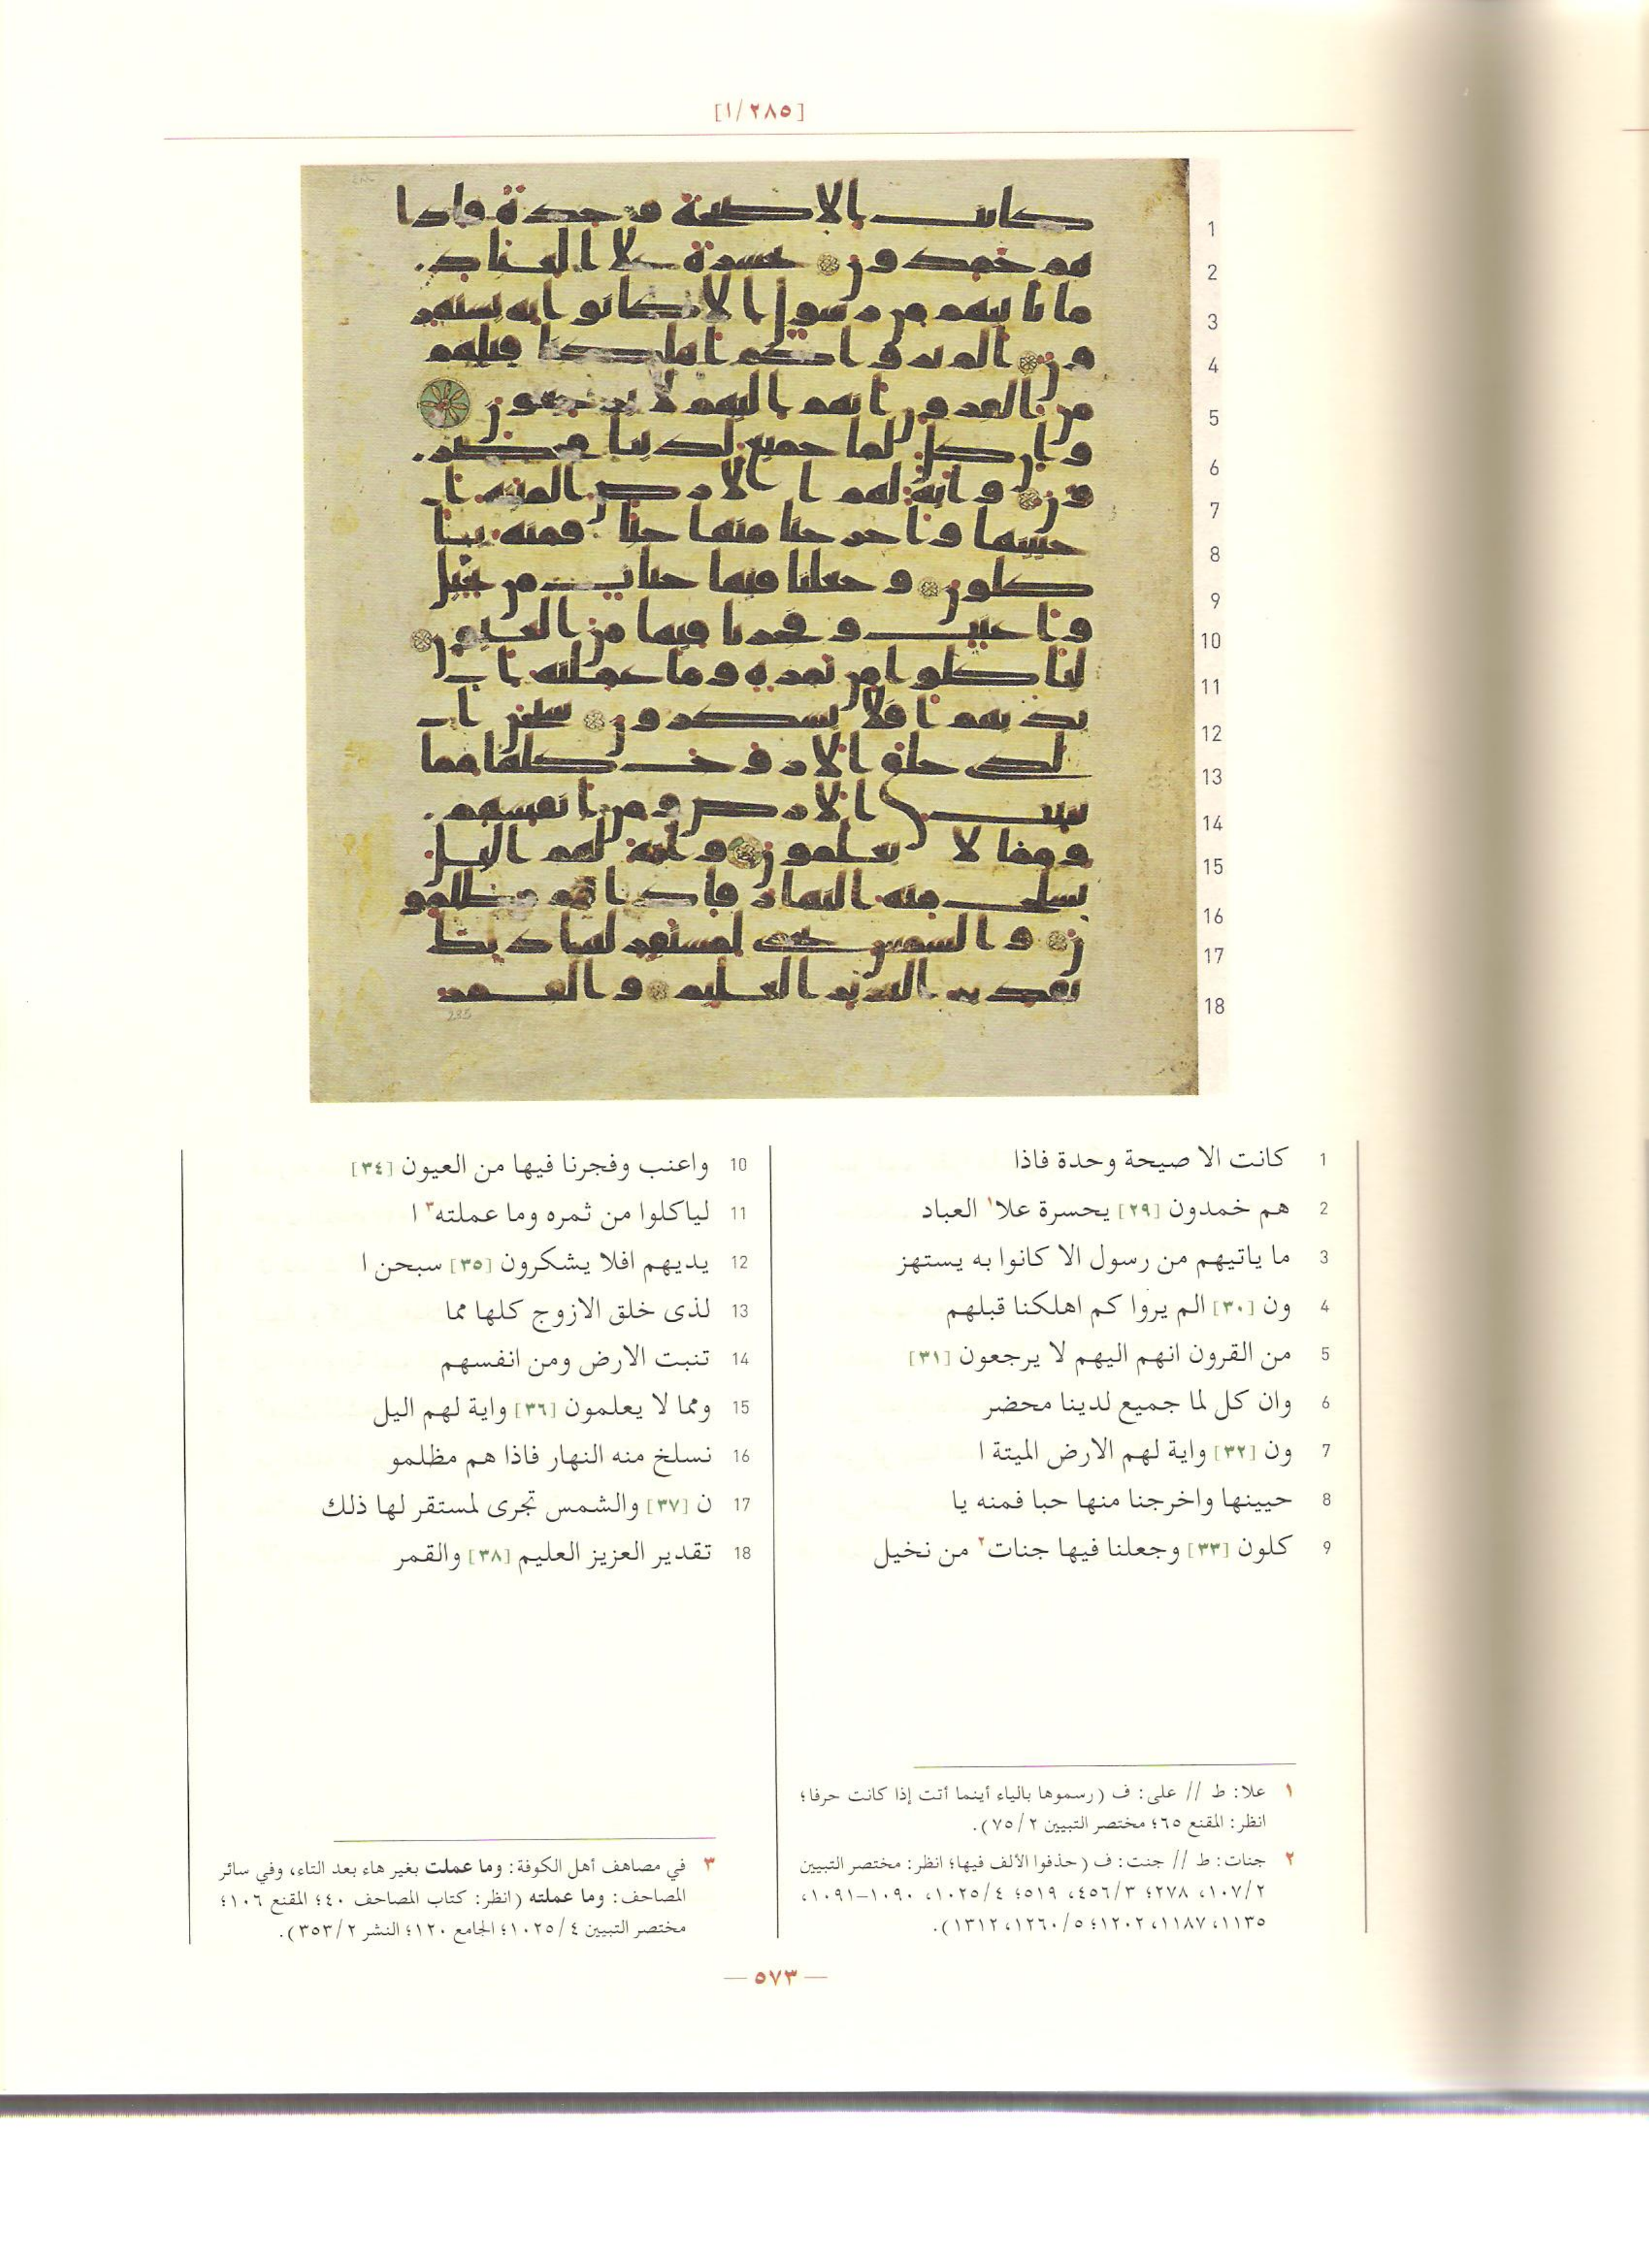 [١/٢٨٥]
1 كانت الا صيحة وحدة فاذا
2 هم خمدون [٢٩] يحسرة علا١ العباد
3 ما ياتيهم من رسول الا كانوا به يستهز
4 ون [٣٠] الم يروا كم اهلكنا قبلهم
5 من القرون انهم اليهم لا يرجعون [٣١]
6 وان كل لما جميع لدينا محضر
7 ون [٣٢] واية لهم الارض الميتة ا
8 حيينها واخرجنا منها حبا فمنه يا
9 كلون [٣٣] وجعلنا فيها جنات٢ من نخيل
10 واعنب وفجرنا فيها من العيون [٣٤]
11 لياكلوا من ثمره وما عملته٣ ا
12 يديهم افلا يشكرون [٣٥] سبحن ا
13 لذى خلق الازوج كلها مما
14 تنبت الارض ومن انفسهم
15 ومما لا يعلمون [٣٦] واية لهم اليل
16 نسلخ منه النهار فاذا هم مظلمو
17 ن [٣٧] والشمس تجرى لمستقر لها ذلك
18 تقدير العزيز العليم [٣٨] والقمر
١ علا: ط // على: ف (رسموها بالياء أينما أتت إذا كانت حرفا؛
انظر: المقنع ٦٥؛ مختصر التبيين ٧٥/٢).
٢ جنات: ط // جنت: ف (حذفوا الألف فيها؛ انظر: مختصر التبيين
١٠٧/٢، ٢٧٨؛ ٤٥٦/٣، ٥١٩؛ ١٠٢٥/٤، ١٠٩٠–١٠٩١،
١١٣٥، ١١٨٧، ١٢٠٢؛ ١٢٦٠/٥، ١٣١٢).
٣ في مصاهف أهل الكوفة: وما عملت بغير هاء بعد التاء، وفي سائر
المصاحف: وما عملته (انظر: كتاب المصاحف ٤٠؛ المقنع ١٠٦؛
مختصر التبيين ١٠٢٥/٤؛ الجامع ١٢٠؛ النشر ٣٥٣/٢).
— ٥٧٣ —